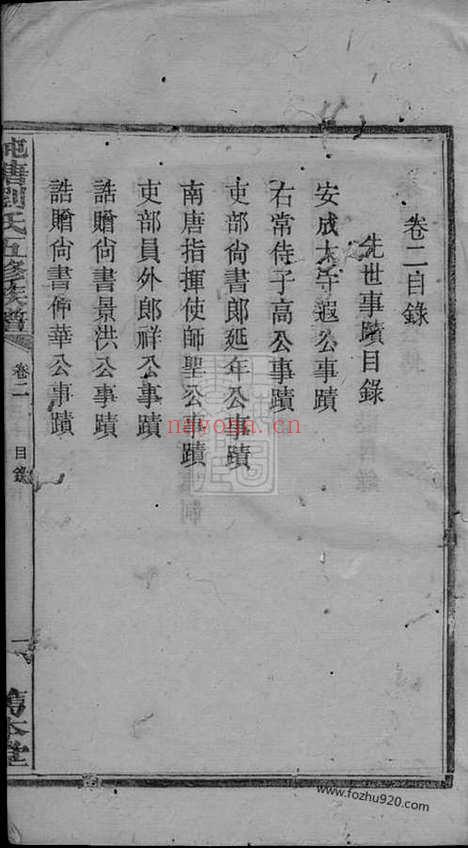 卷二目錄
先世事蹟目錄
安成太守遐公事蹟
右常侍子高公事蹟
吏部尙書郎延年公事蹟
南唐指揮使師聖公事蹟
吏部員外郎祥公事蹟
誥贈尙書景洪公事蹟
誥贈尙書仲華公事蹟
劉氏五修族譜
卷二
目錄
一
本堂
nayona.cn
www.fozhu920.com